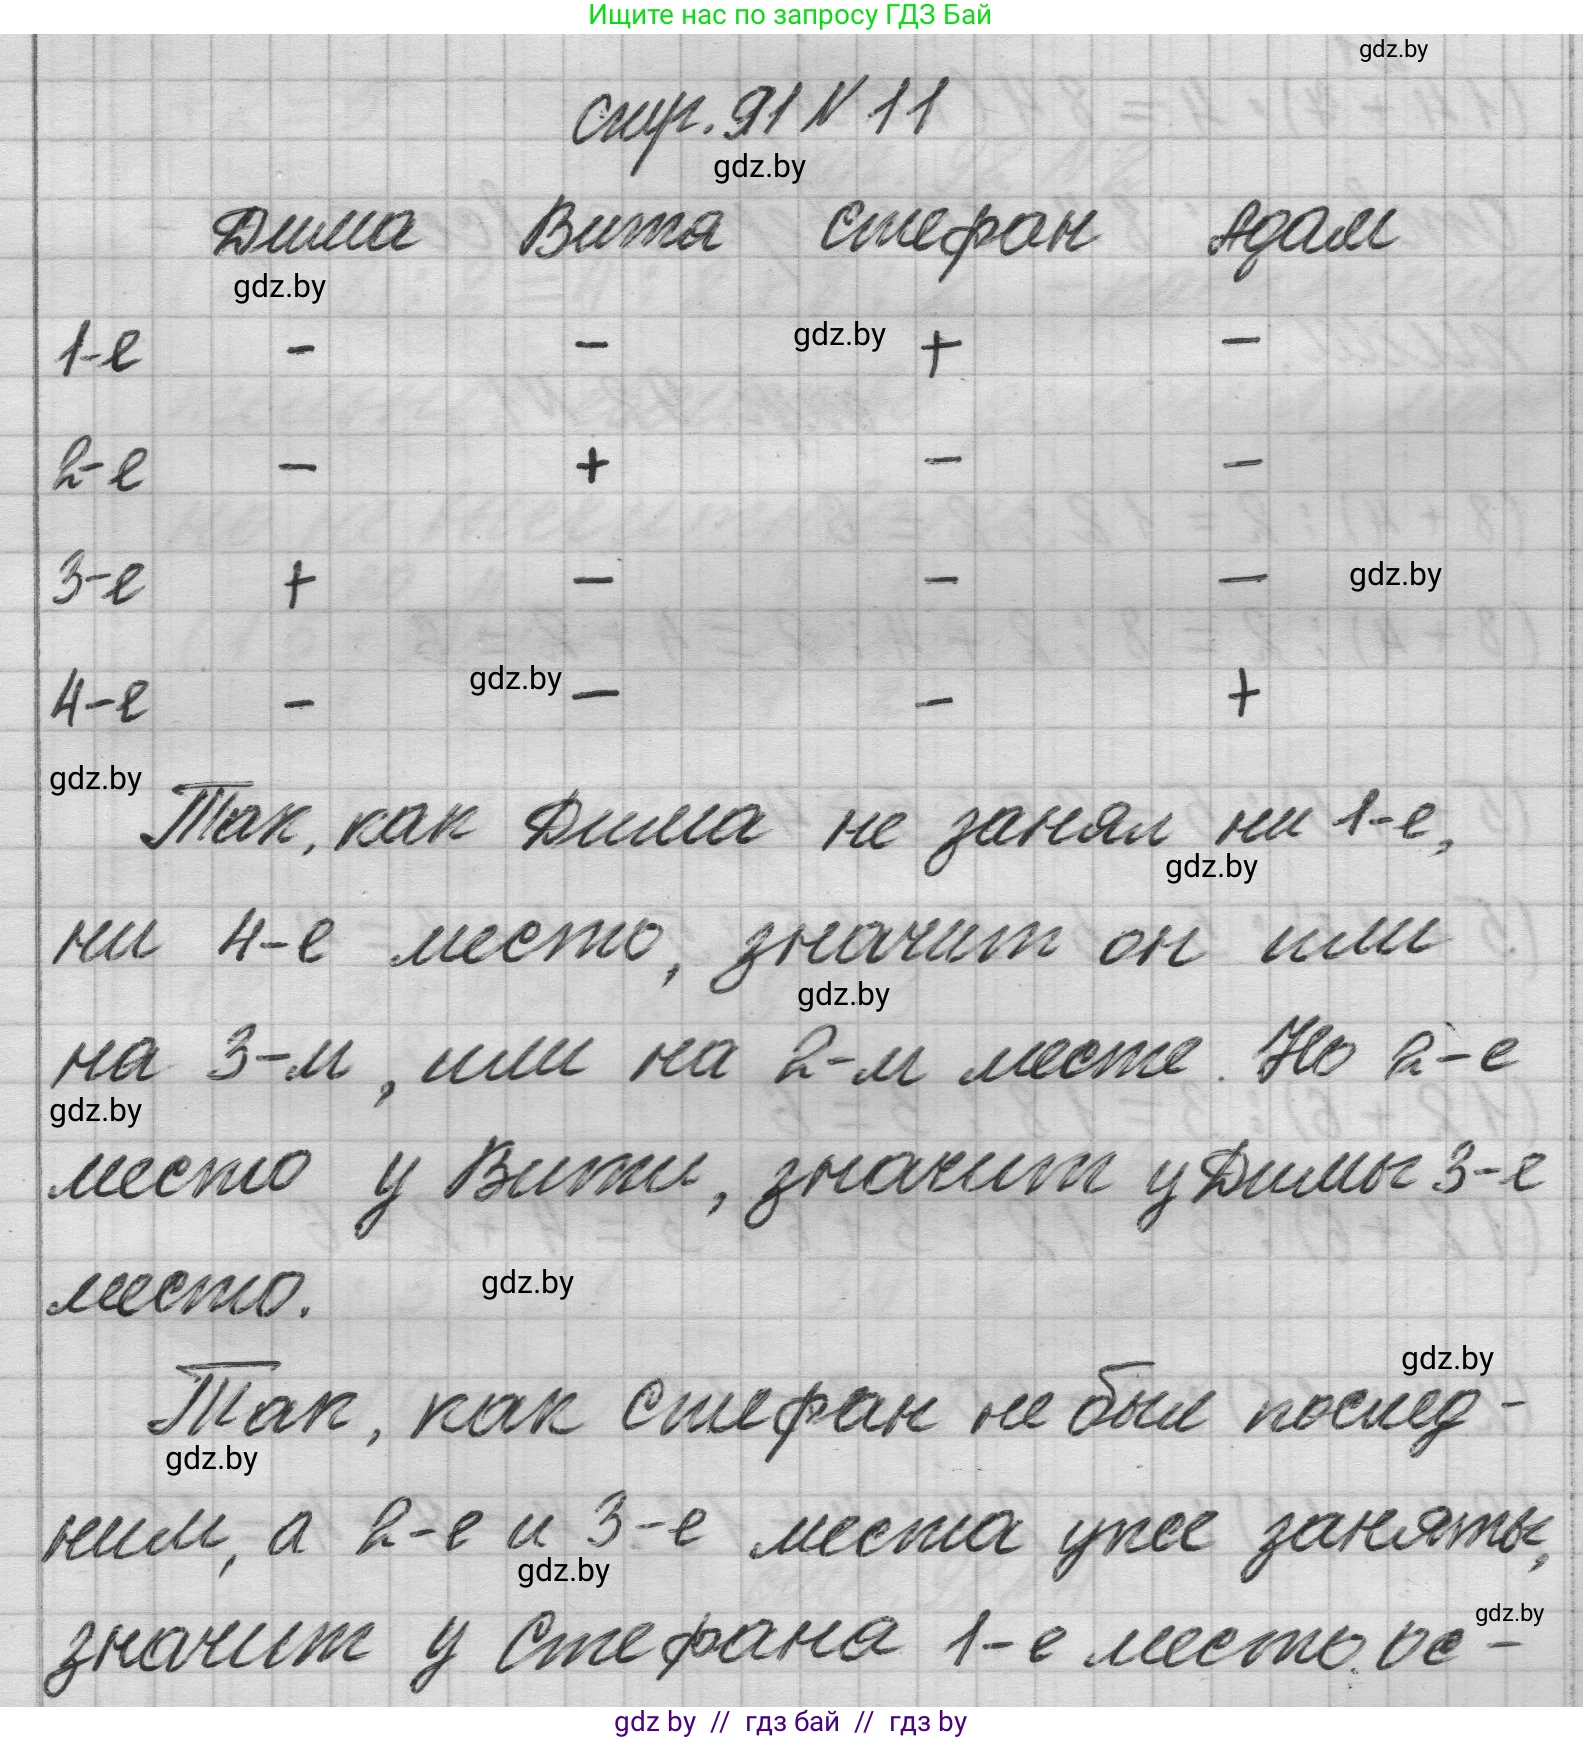 Ищите нас по запросу ГДЗ Бай
gdz.by
стр. 91 № 11
gdz.by
Дима Витя Стефан Адам
gdz.by
1-е - - gdz.by + -
2-е - + - -
3-е + - - - gdz.by
4-е - gdz.by - - +
gdz.by
Так, как Дима не занял ни 1-е,
gdz.by
ни 4-е место, значит он или
gdz.by
на 3-м, или на 2-м месте. Но 2-е
gdz.by
место у Вити, значит у Димы 3-е
место. gdz.by
gdz.by
Так, как Стефан не был послед-
gdz.by
ним, а 2-е и 3-е места уже заняты,
gdz.by
gdz.by
значит у Стефана 1-е место. Ос-
gdz by // гдз бай // гдз by